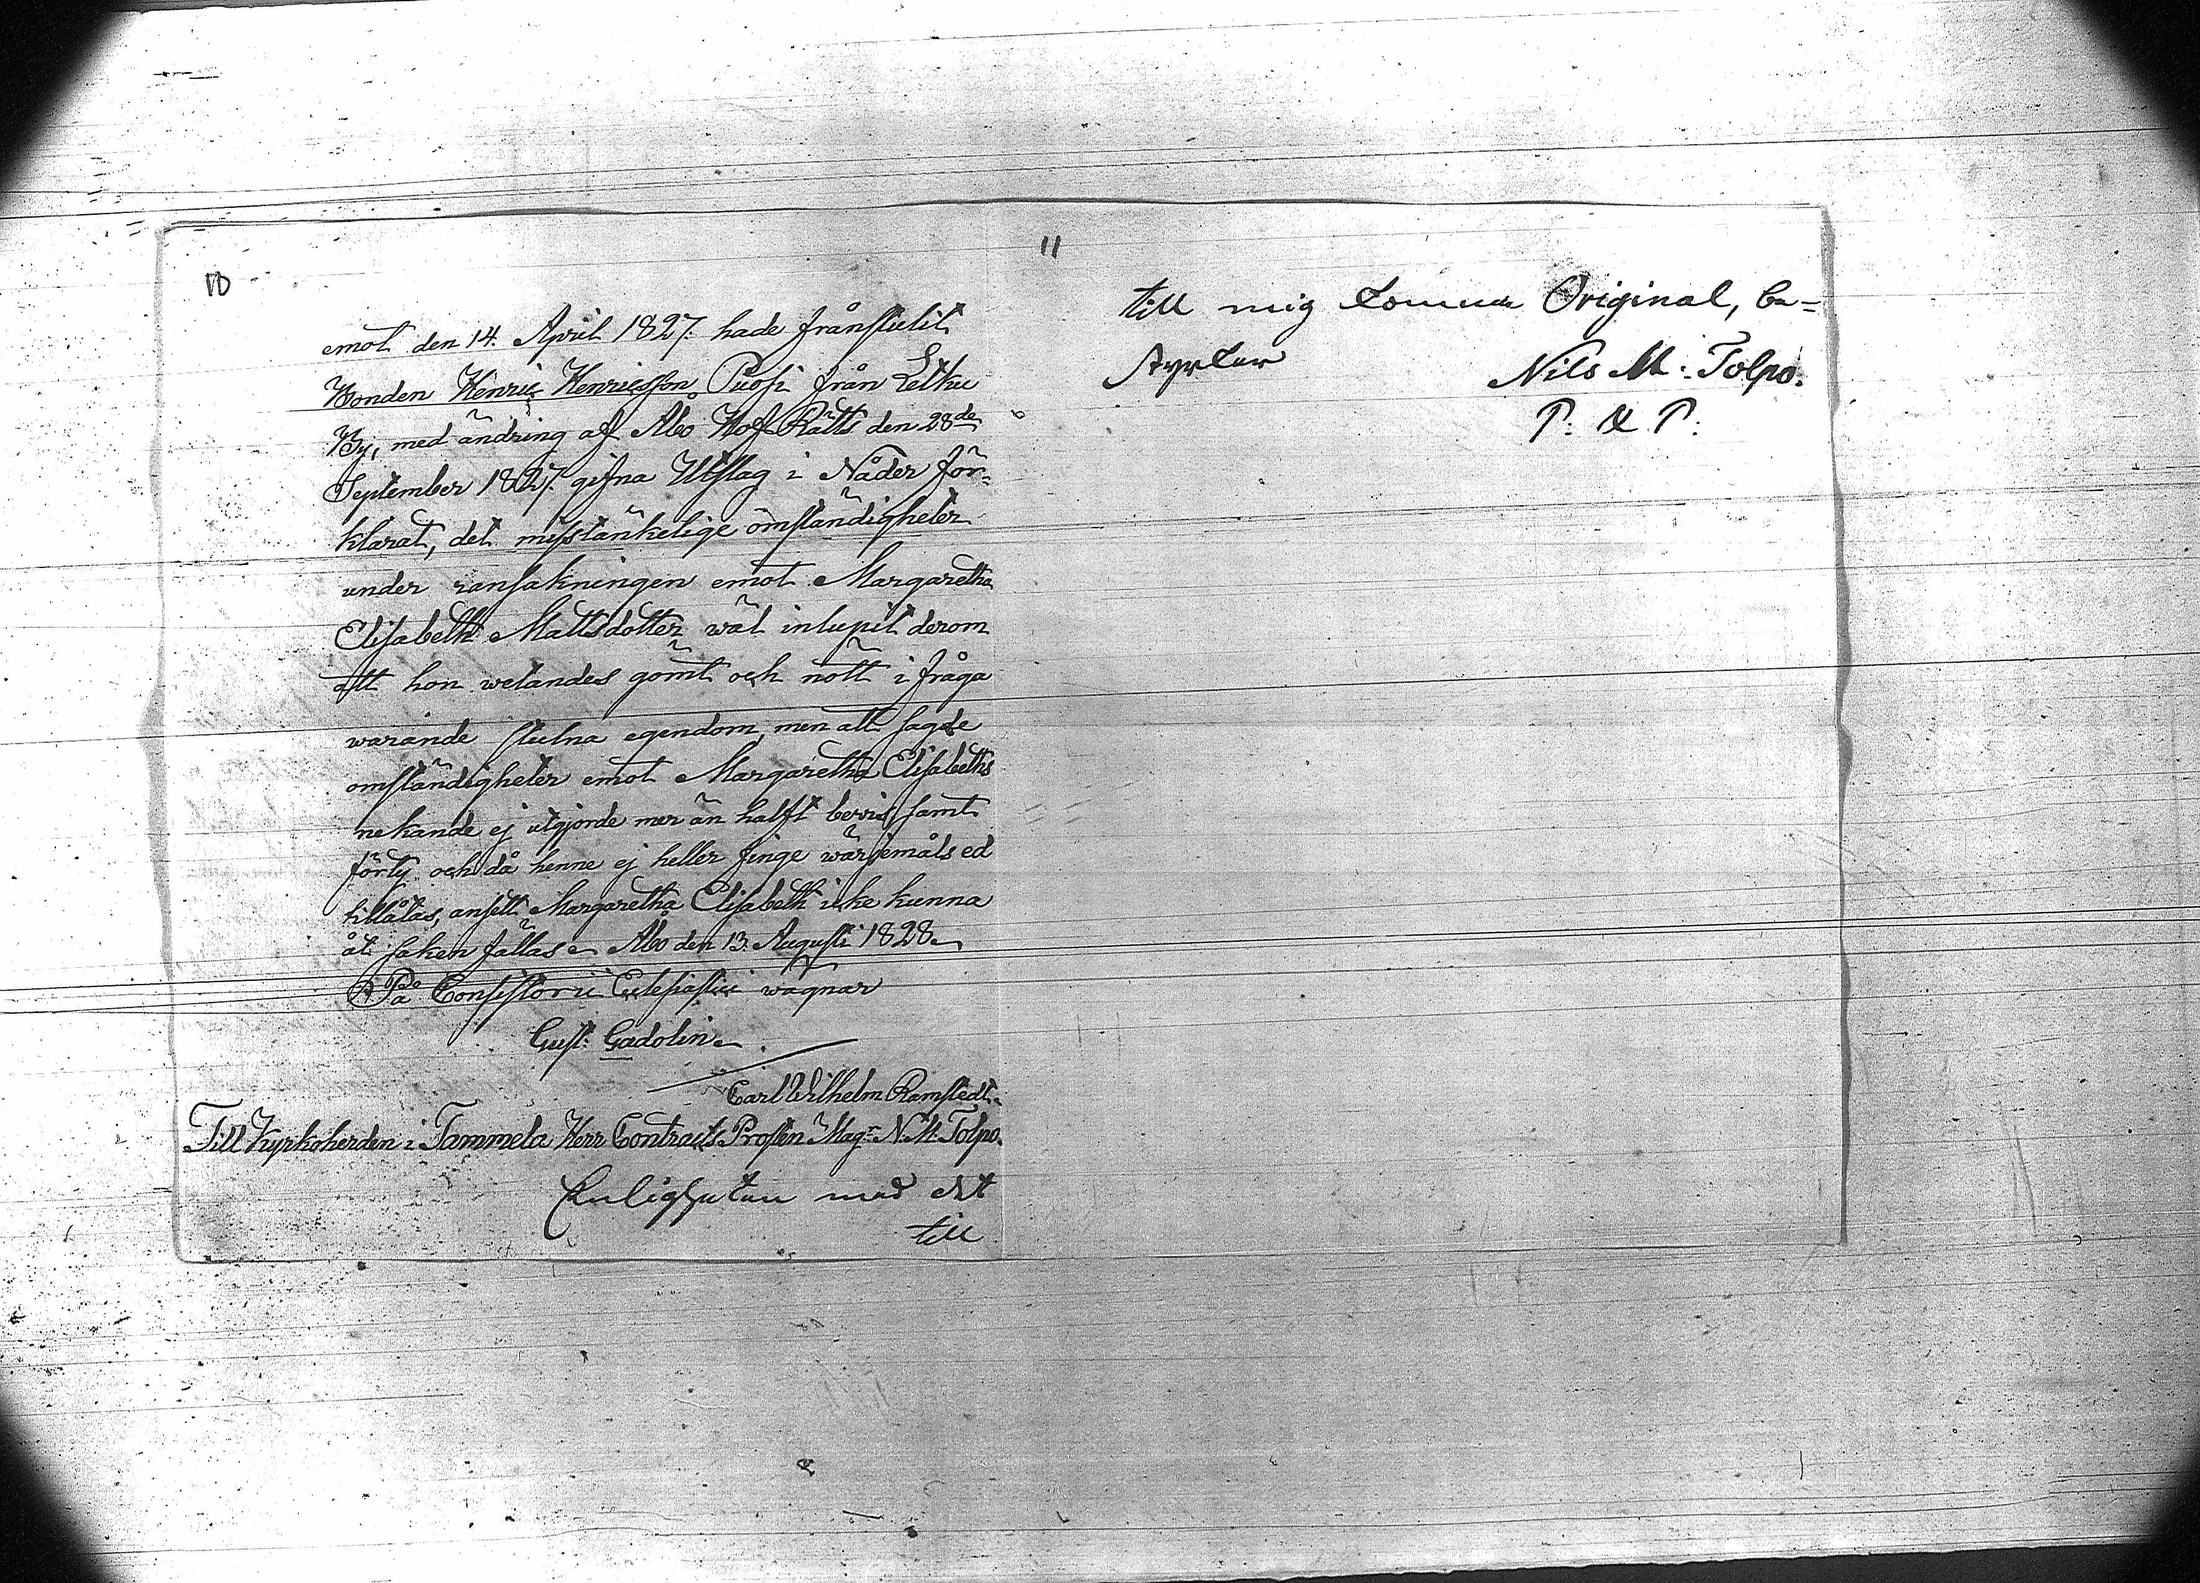 10
emot den 14. April 1827. hade frånstulit
Bonden Henric Henricsson Puosi från Letku
By, med ändring af Åbo Hof Rätts den 28de
September 1827. gifna Utslag i Nåder för=
klarat, det misstänkelige omständigheter
under ransakningen emot Margaretha
Elisabeth Mattsdotter wäl inlupit derom
att hon wetandes gömt och nött i fråga
warande stulna egendom, men att sagde
omständigheter emot Margaretha Elisabeths
nekande ej utgjorde mer än halft bevis, samt
förty och då henne ej heller finge wärjemåls ed
tillåtas, ansett Margaretha Elisabeth icke kunna
åt saken fällas. Åbo den 13. Augusti 1828.
På Consistorii Eclesiastici wägnar
Gust: Gadolin.
Carl Wilhelm Ramstedt.
Till Kyrkoherden i Tammela Herr Contracts Prosten Magr. N. M. Tolpo.
Enligheten med det
till
11
till mig komna Original, be=
styrker
Nils M. Tolpo.
P. & P.